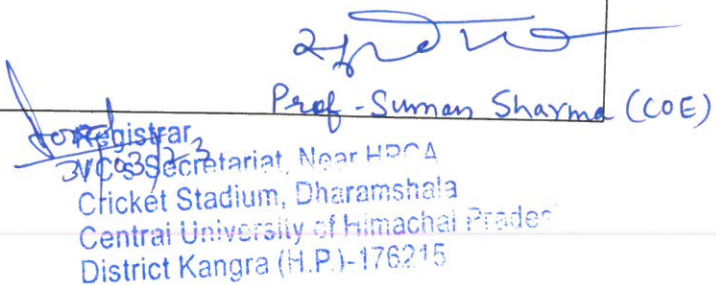 Prof - Suman Sharma (COE)
Registrar
VC's Secretariat, Near HPCA
Cricket Stadium, Dharamshala
Central University of Himachal Prades
District Kangra (H.P.)-176215